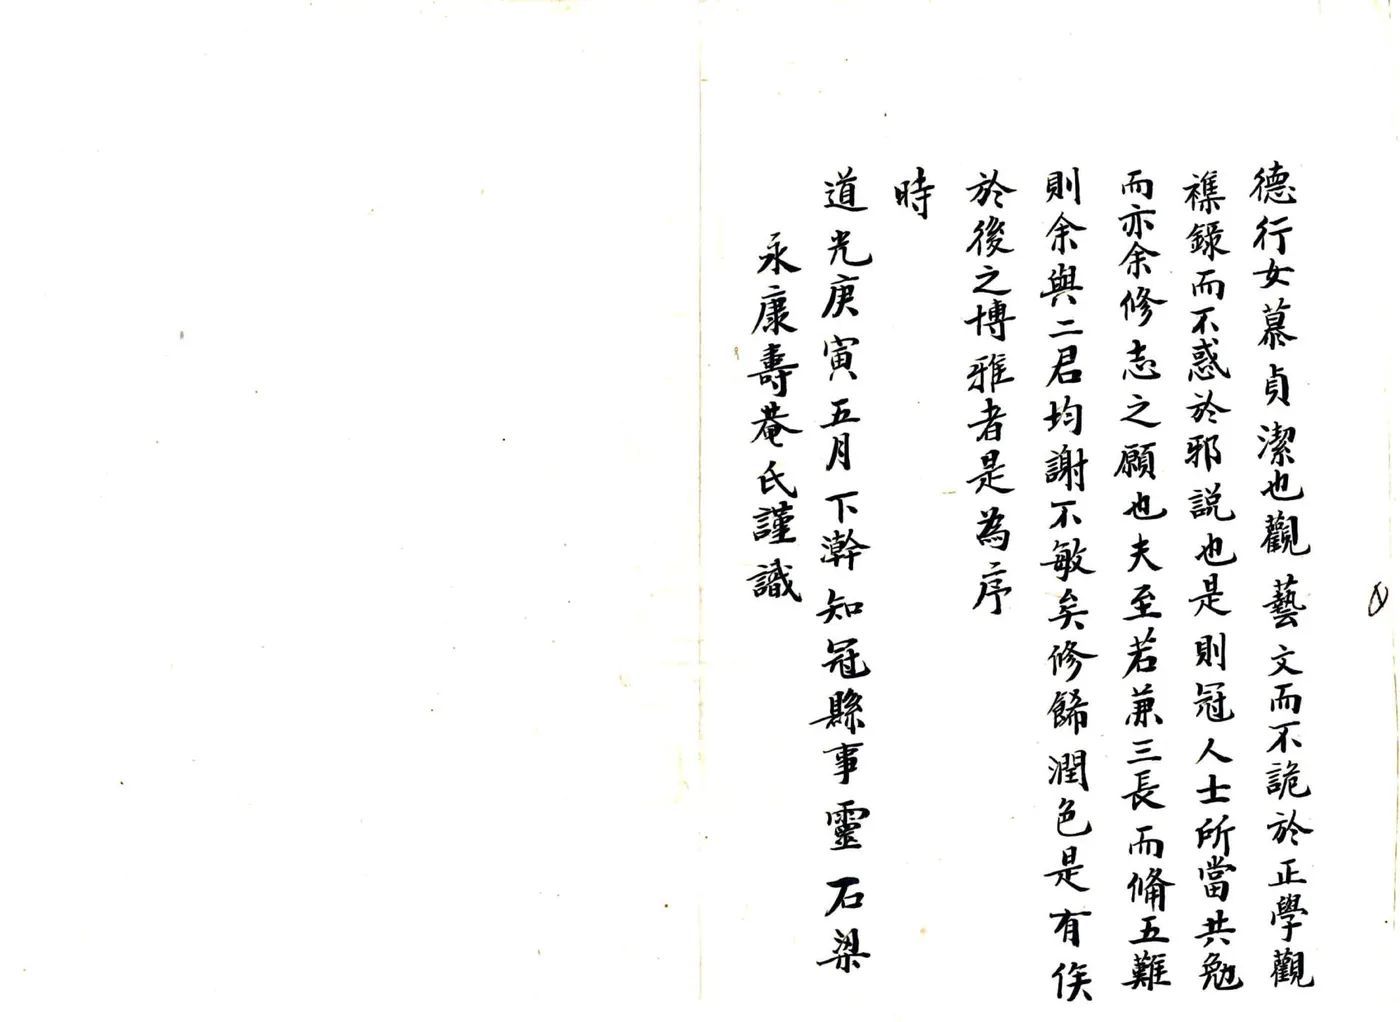 德行女慕貞潔也觀藝文而不詭於正學觀
襍録而不惑於邪説也是則冠人士所當共勉
而亦余修志之願也夫至若兼三長而偹五難
則余與二君均謝不敏矣修餙潤色是有俟
於後之博雅者是為序
時
道光庚寅五月下澣知冠縣事靈石梁
永康壽菴氏謹識